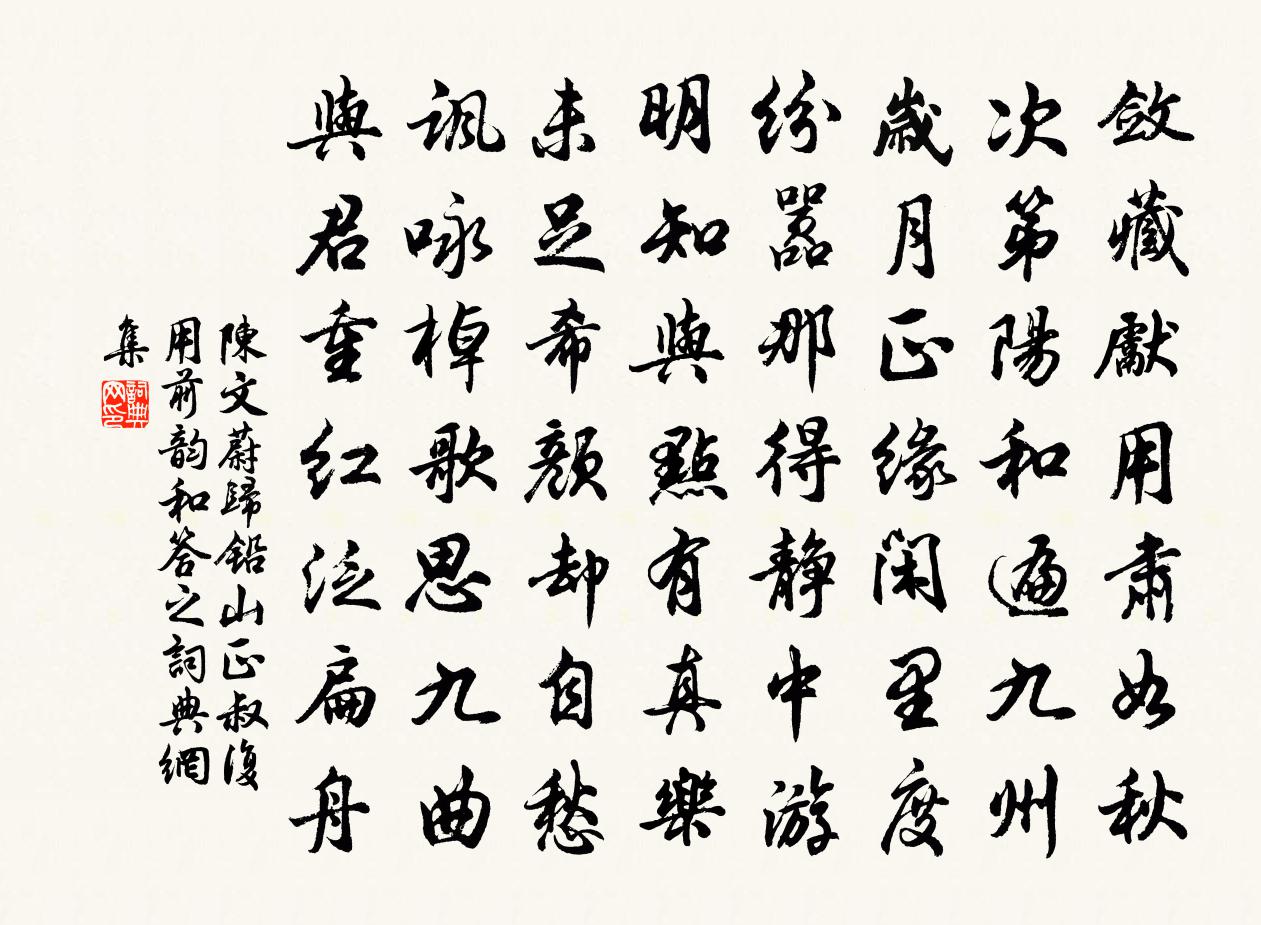 斂藏獻用肅如秋
次第陽和遍九州
歲月正緣閑里度
紛囂那得靜中游
明知與點有真樂
未足希顏却自愁
諷咏棹歌思九曲
與君重紅泛扁舟
陳文蔚歸鉛山正叔復
用前韵和答之詞典網
集
詞典網印